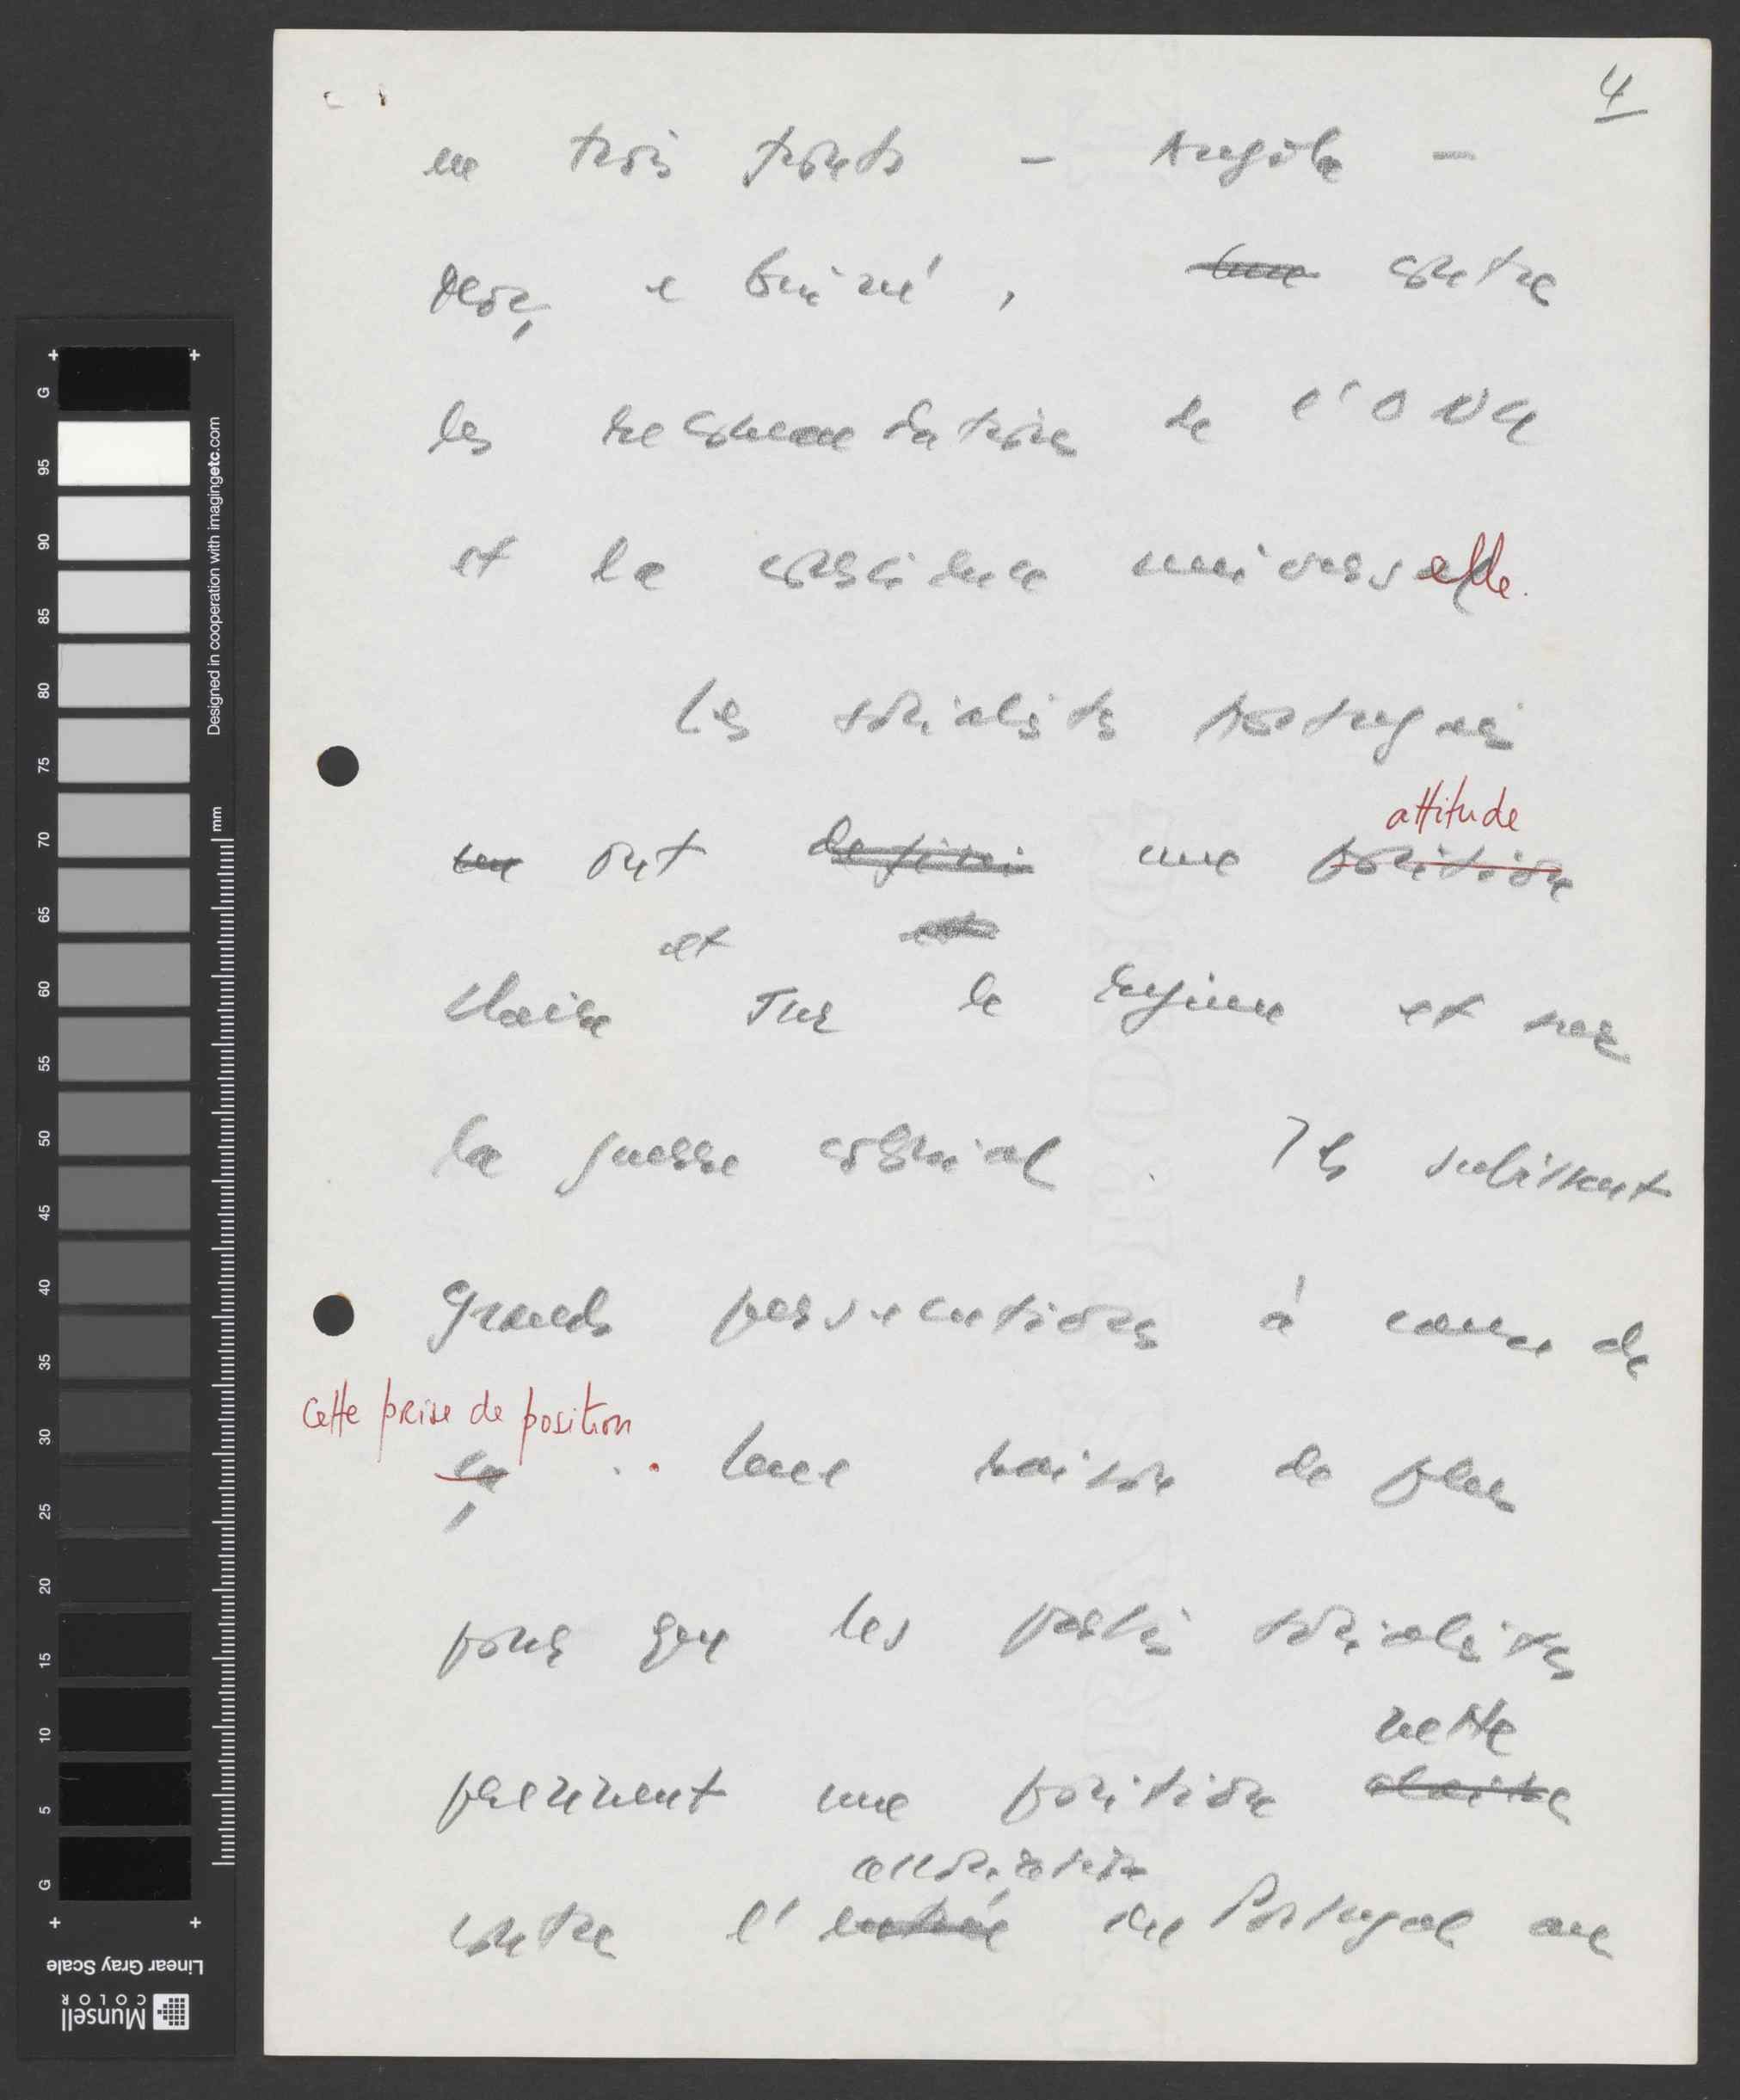 4
en trois fronts - Angola -
Moz, e Guiné, contre
les recommendations de l'ONU
et la conscience universelle.
Les socialists portugais
attitude
ont defini une position
et
claire sur le regime et sur
la guerre colonial. Ils subissent
grands persecutions à cause de
cette prise de position
ça . Une raison de plus
pour que les partis socialistes
nette
prennent une position claire
association
contre l'entrée du Portugal au
G 95 90 85 80 75 70 65 60 55 50 45 40 35 30 25 20 15 10 5 G
Designed in cooperation with imagingetc.com
mm
Linear Gray Scale
Munsell
COLOR